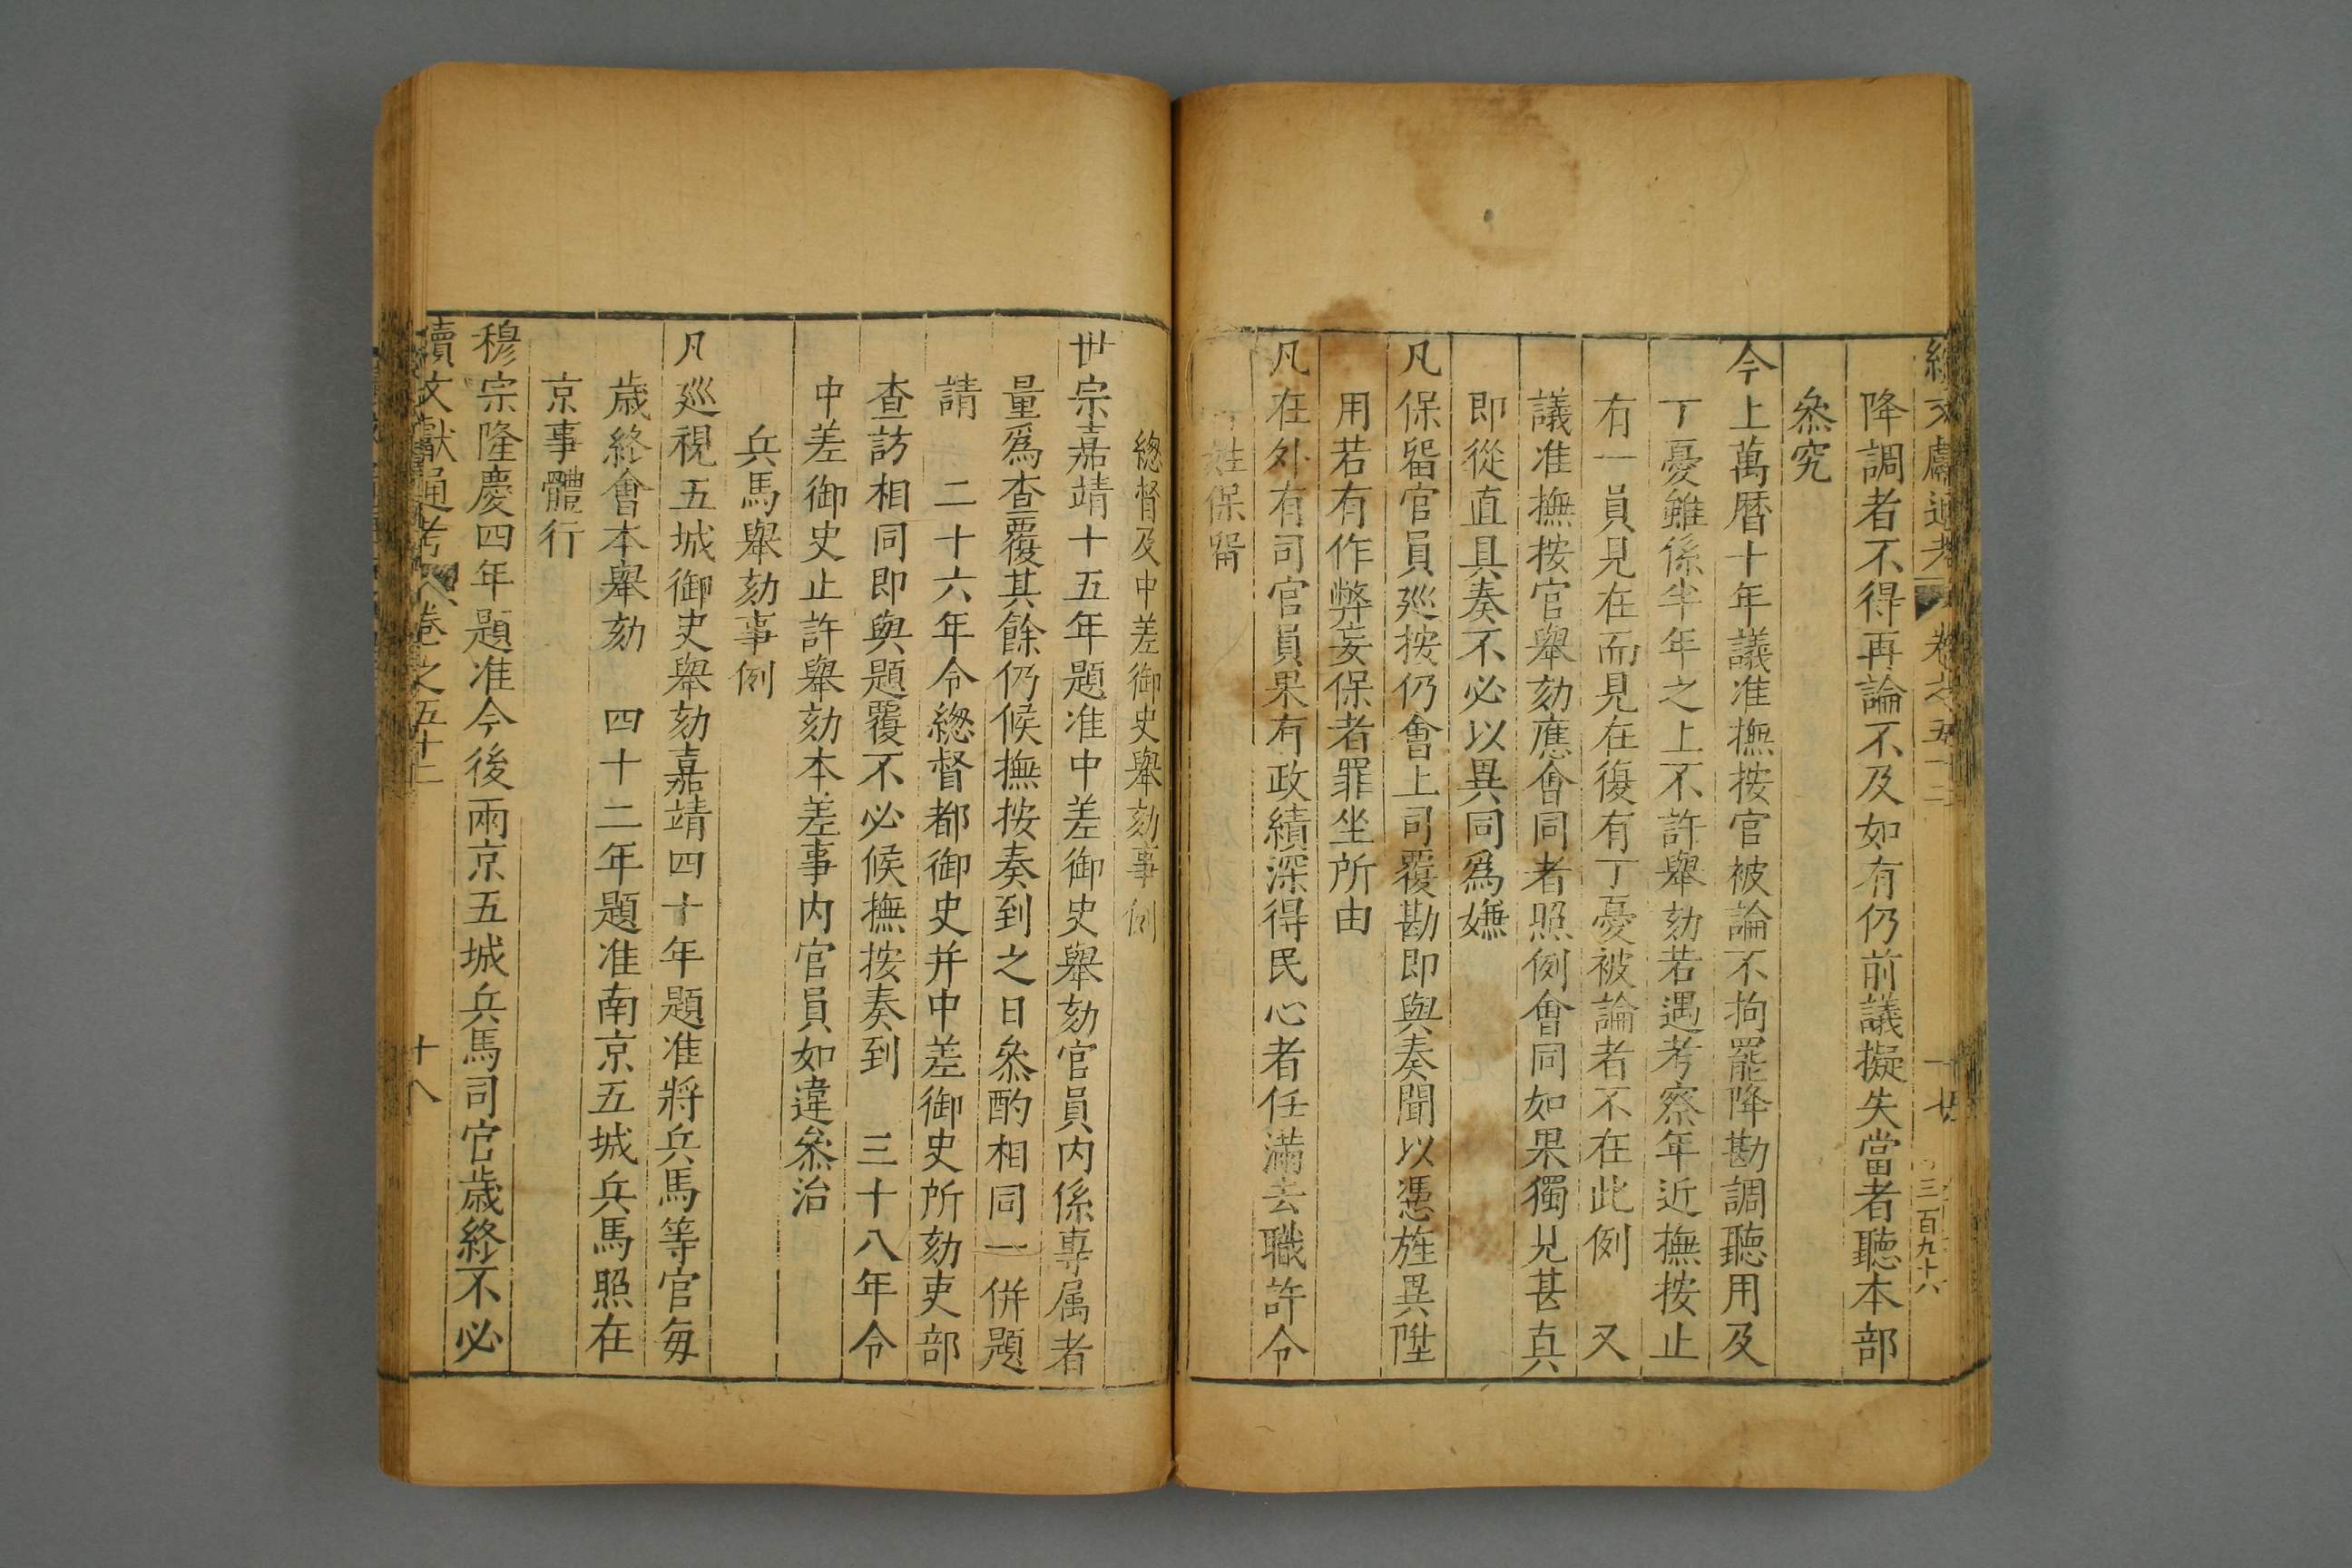 降調者不得再論不及如有仍前議擬失當者聽本部
叅究
今上萬曆十年議准撫按官被論不拘罷降勘調聽用及
丁憂雖係半年之上不許舉劾若遇考察年近撫按止
有一員見在而見在復有丁憂被論者不在此例　又
議准撫按官舉劾應會同者照例會同如果獨見甚真
即從直具奏不必以異同為嫌
凡保留官員廵按仍會上司覆勘即與奏聞以憑旌異陞
用若有作弊妄保者罪坐所由
凡在外有司官員果有政績深得民心者任滿去職許令
姓保留
總督及中差御史舉劾事例
世宗嘉靖十五年題准中差御史舉劾官員内係專属者
量爲查覆其餘仍候撫按奏到之日叅酌相同一併題
請　二十六年令緫督都御史并中差御史所劾吏部
查訪相同即與題覆不必候撫按奏到　三十八年令
中差御史止許舉劾本差事内官員如違叅治
兵馬舉劾事例
凡廵視五城御史舉劾嘉靖四十年題准將兵馬等官每
歳終會本舉劾　四十二年題准南京五城兵馬照在
京事體行
穆宗隆慶四年題准今後兩京五城兵馬司官歳終不必
續文獻通考　卷之五十二　十八